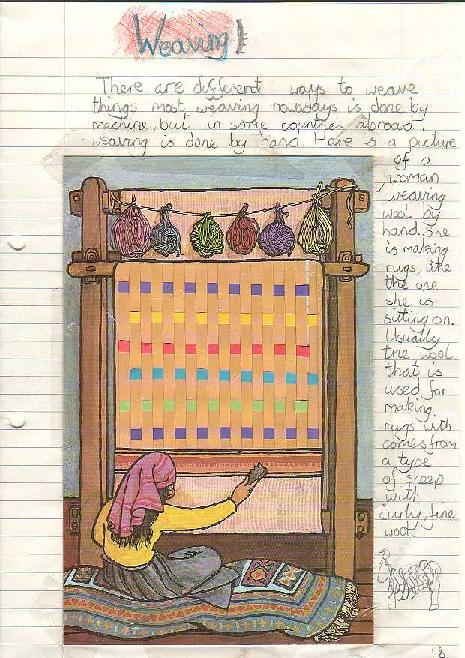 Weaving
There are different ways to weave
things most weaving nowdays is done by
machine, but in some countries abroad,
weaving is done by hand. Here is a picture
of a
woman
weaving
wool by
hand. She
is making
rugs, like
the one
she is
sitting on.
Usually
the wool
that is
used for
making
rugs with
comes from
a type
of sheep
with
curly, fine
wool.